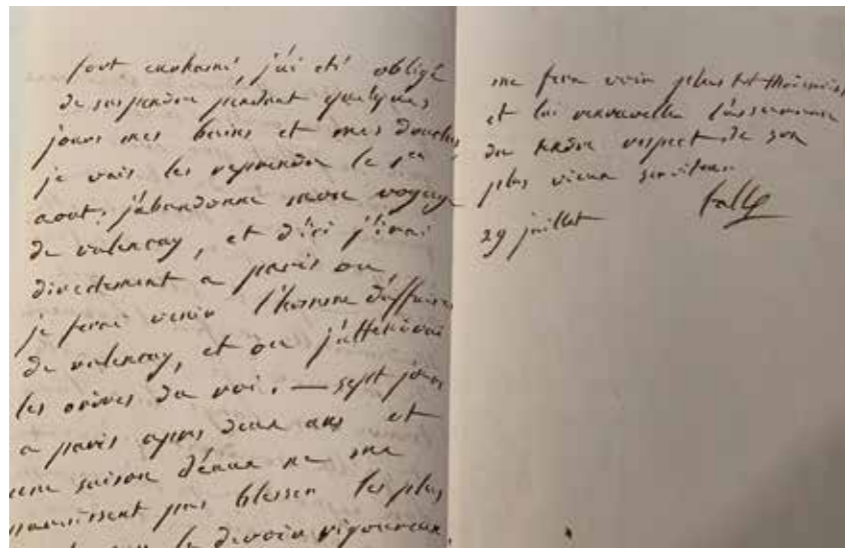 fort enrhumé, j'ai été obligé
de suspendre pendant quelques
jours mes bains et mes douches,
je vais les reprendre le 1er
aout; j'abandonne mon voyage
de valençay, et d'ici j'irai
directement a paris ou
je ferai venir l'homme d'affaires
de valençay, et ou j'attendrai
les ordres du roi. — sept jours
a paris apres deux ans et
une saison d'eaux ne me
paraissent pas blesser les plus
le devoir rigoureux.
me fera voir plustot
et lui renouveller l'assurance
du tendre respect de son
plus vieux serviteur.
tally
29 juillet